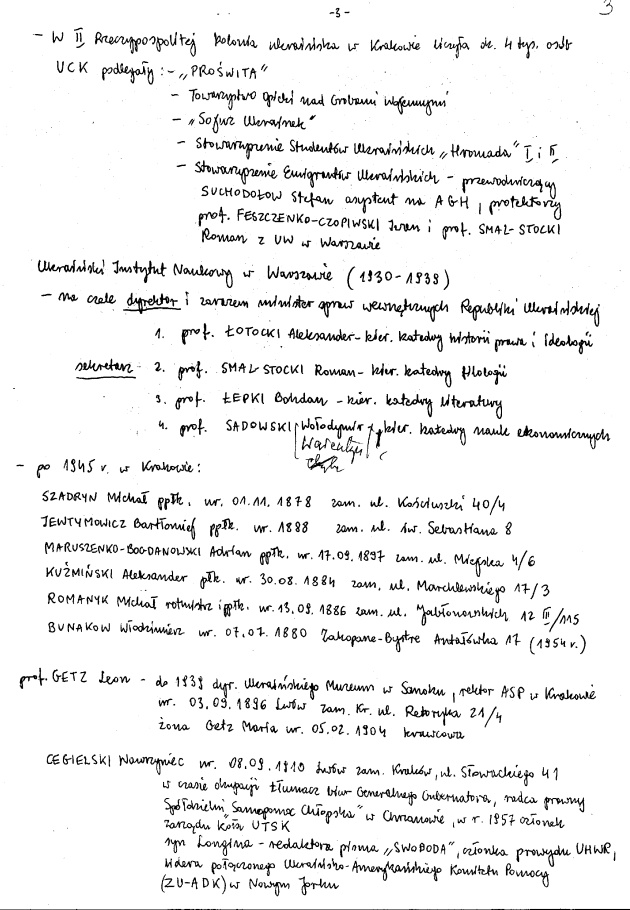 -3-
3
- W II Rzeczypospolitej kolonia ukraińska w Krakowie liczyła ok. 4 tys. osób
UCK podlegały: - „PROŚWITA"
- Towarzystwo Opieki nad Grobami Wojennymi
- „Sojuz Ukrainek"
- Stowarzyszenie Studentów Ukraińskich „Hromada" I i II
- Stowarzyszenie Emigrantów Ukraińskich - przewodniczący
SUCHODOŁOW Stefan asystent na AGH, protektorzy
prof. FESZCZENKO-CZOPIWSKI Iwan i prof. SMAL-STOCKI
Roman z UW w Warszawie
Ukraiński Instytut Naukowy w Warszawie (1930-1939)
- na czele dyrektor i zarazem minister spraw wewnętrznych Republiki Ukraińskiej
1. prof. ŁOTOCKI Aleksander - kier. katedry historii prawa i ideologii
sekretarz 2. prof. SMAL STOCKI Roman - kier. katedry filologii
3. prof. ŁEPKI Bohdan - kier. katedry literatury
4. prof. SADOWSKI Wołodymir kier. katedry nauk ekonomicznych
Walentyn
- po 1945 r. w Krakowie:
SZADRYN Michał ppłk. ur. 01.11.1878 zam. ul. Kościuszki 40/4
JEWTYMOWICZ Bartłomiej ppłk. ur. 1888 zam. ul. św. Sebastiana 8
MARUSZENKO-BOGDANOWSKI Adrian ppłk. ur. 17.09.1897 zam. ul. Miejska 4/6
KUŹMIŃSKI Aleksander płk. ur. 30.08.1884 zam. ul. Marchlewskiego 17/3
ROMANYK Michał rotmistrz ppłk. ur. 13.09.1886 zam. ul. Jabłonowskich 12 III/115
BUNAKOW Włodzimierz ur. 07.07.1880 Zakopane-Bystre Antałówka 17 (1954 r.)
prof. GETZ Leon - do 1939 dyr. Ukraińskiego Muzeum w Sanoku, rektor ASP w Krakowie
ur. 03.09.1896 Lwów zam. Kr. ul. Retoryka 21/4
żona Getz Maria ur. 05.02.1904 krawcowa
CEGIELSKI Wawrzyniec ur. 08.09.1910 Lwów zam. Kraków, ul. Słowackiego 41
w czasie okupacji tłumacz biur Generalnego Gubernatora, radca prawny
Spółdzielni „Samopomoc Chłopska" w Chrzanowie, w r. 1957 członek
zarządu Koła UTSK
syn Longina - redaktora pisma „SWOBODA", członka prowydu UHWR,
lidera połączonego Ukraińsko-Amerykańskiego Komitetu Pomocy
(ZU-ADK) w Nowym Jorku